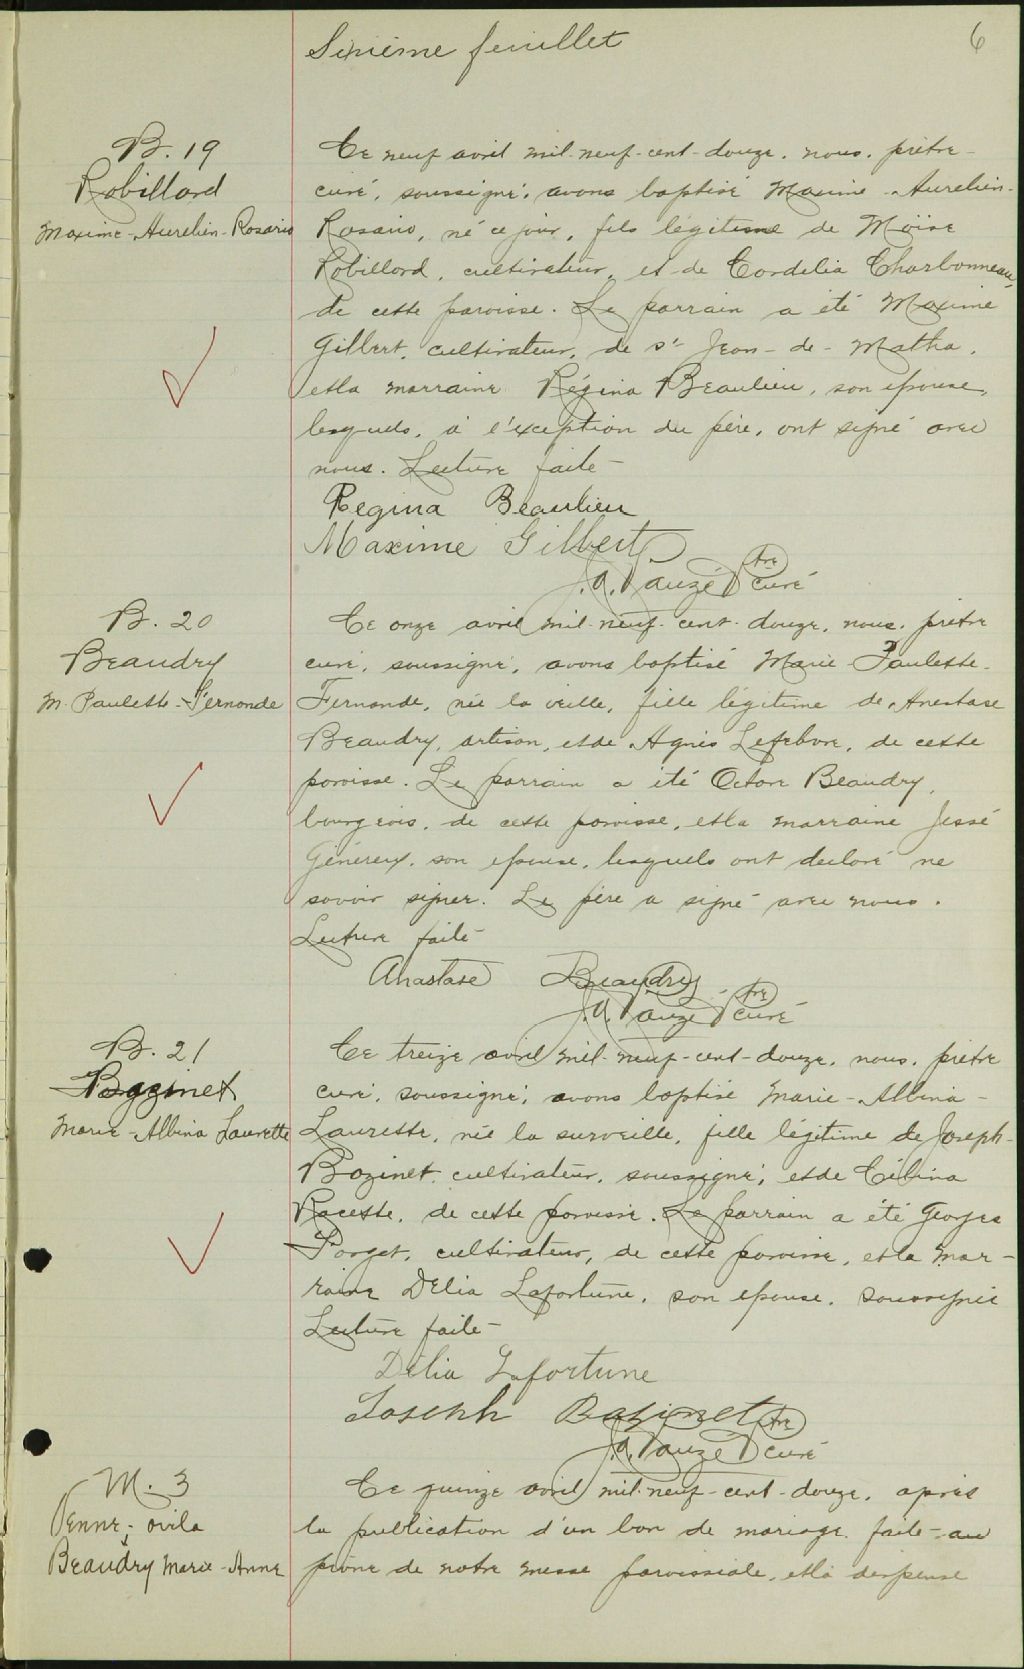 Sixième feuillet
6
B. 19
Robillard
Maxime-Aurelien-Rosario
Ce neuf avril mil-neuf-cent-douze, nous, prêtre-
curé, soussigné, avons baptisé Maxime-Aurelien-
Rosario, né ce jour, fils légitime de Moïse
Robillard, cultivateur, et de Cordelia Charbonneau,
de cette paroisse. Le parrain a été Maxime
Gilbert, cultivateur, de St Jean-de-Matha,
et la marraine Régina Beaulieu, son épouse,
lesquels, à l'exception du père, ont signé avec
nous. Lecture faite
Regina Beaulieu
Maxime Gilbert
J.A. Vauzé Ptre curé
B. 20
Beaudry
M. Paulette-Fernande
Ce onze avril mil-neuf-cent-douze, nous, prêtre
curé, soussigné, avons baptisé Marie-Paulette-
Fernande, née la veille, fille légitime de Anastase
Beaudry, artisan, et de Agnès Lefebvre, de cette
paroisse. Le parrain a été Octave Beaudry,
bourgeois, de cette paroisse, et la marraine Jessé
Généreux, son épouse, lesquels ont déclaré ne
savoir signer. Le père a signé avec nous.
Lecture faite
Anastase Beaudry
J.A. Vauzé Ptre curé
B. 21
Bazinet
Marie-Albina Laurette
Ce treize avril mil-neuf-cent-douze, nous, prêtre
curé, soussigné, avons baptisé Marie-Albina-
Laurette, née la surveille, fille légitime de Joseph-
Bazinet, cultivateur, soussigné, et de Célina
Racette, de cette paroisse. Le parrain a été Georges
Forget, cultivateur, de cette paroisse, et la mar-
raine Délia Lafortune, son épouse, soussignée
Lecture faite
Délia Lafortune
Joseph Bazinet
J.A. Vauzé Ptre curé
M. 3
Venne, Ovila
&
Beaudry Marie-Anne
Ce quinze avril mil-neuf-cent-douze, après
la publication d'un ban de mariage faite au
prône de notre messe paroissiale, et la dispense